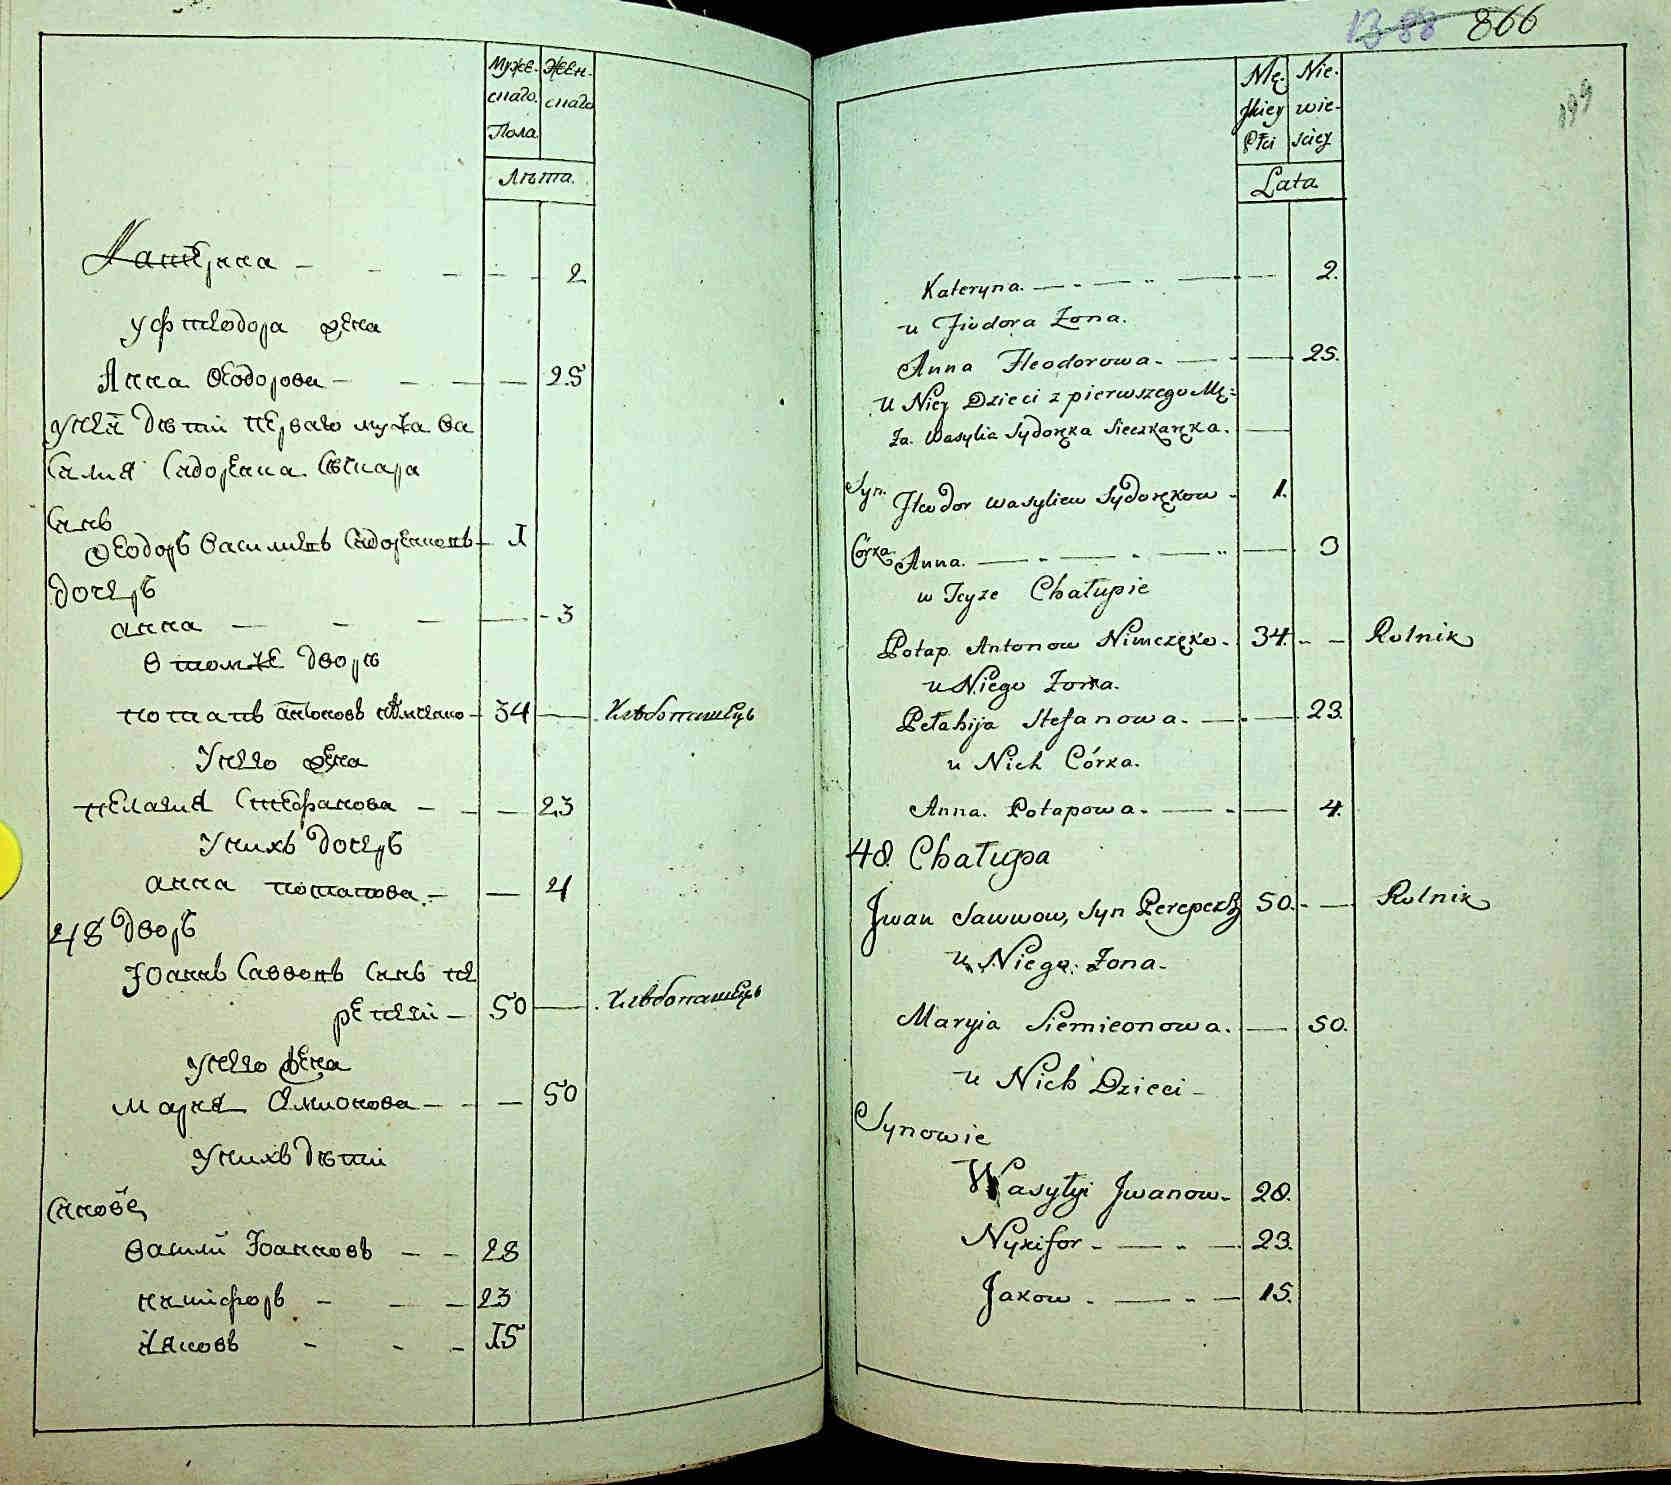 Муже- Женс-
скаго скаго
Пола
Лѣта.
Катерина - - - - 2
У Ѳтеодора жена
Анна Ѳеодорова - - - - 25
У ней дѣти перваго мужа Ва
силия Сидоренка Сѣчкара
Сынъ
Ѳеодоръ Василиевъ Сидоренковъ - 1
Дочерь
анна - - - - - 3
В томже дворѣ
потапъ антоновъ нѣмченко - 34 - Хлѣбопашецъ
У него жена
пелагия Стефанова - - - 23
У нихъ дочерь
анна потапова. - - 4
48 дворъ
Iоаннъ Саввовъ Сынъ пе
репечи - 50 - Хлѣбопашецъ
У него жена
Мария Симионова - - - 50
У нихъ дѣти
Синове
Василий Iоанновъ - - 28
никифоръ - - - 23
Iяковъ - - - 15
1388 866
199
Mę- Nie-
skiey wie-
Płci sciey
Lata
Kateryna. - - - - - 2.
u Fiodora Zona.
Anna Fteodorowa. - - - 25.
U Niey Dzieci z pierwszego Mę:
Za. Wasylia Sydoręka Sieczkaręka. -
Syn. Fteodor Wasyliew Sydorękow - 1.
Córka. Anna. - - - - - 3
w Teyze Chałupie
Potap. Antonow Nimczęko. - 34. - - Rolnik
u Niego Zona.
Pełahija Stefanowa. - - - 23.
u Nich Córka.
Anna. Potapowa. - - - 4.
48. Chałupa
Jwan Sawwow, Syn Perepeczy 50. - - Rolnik
u Niego. Zona.
Maryia Siemieonowa. - 50.
u Nich Dzieci -
Synowie
Wasyłyi Jwanow. - 28.
Nykifor. - - - 23.
Jakow. - - - 15.